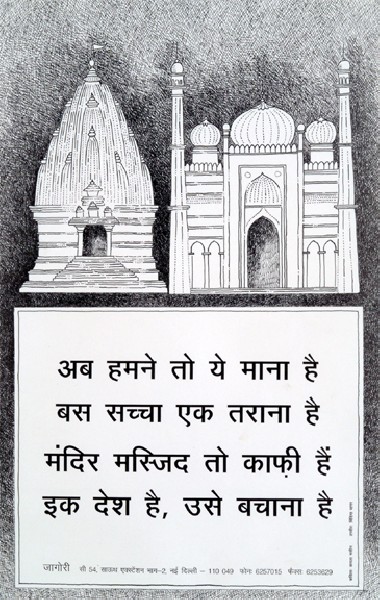 अब हमने तो ये माना है
बस सच्चा एक तराना है
मंदिर मस्जिद तो काफ़ी हैं
इक देश है, उसे बचाना है
जागोरी सी 54, साउथ एक्स्टेंशन भाग-2, नई दिल्ली - 110 049 फोनः 6257015 फैक्सः 6253629